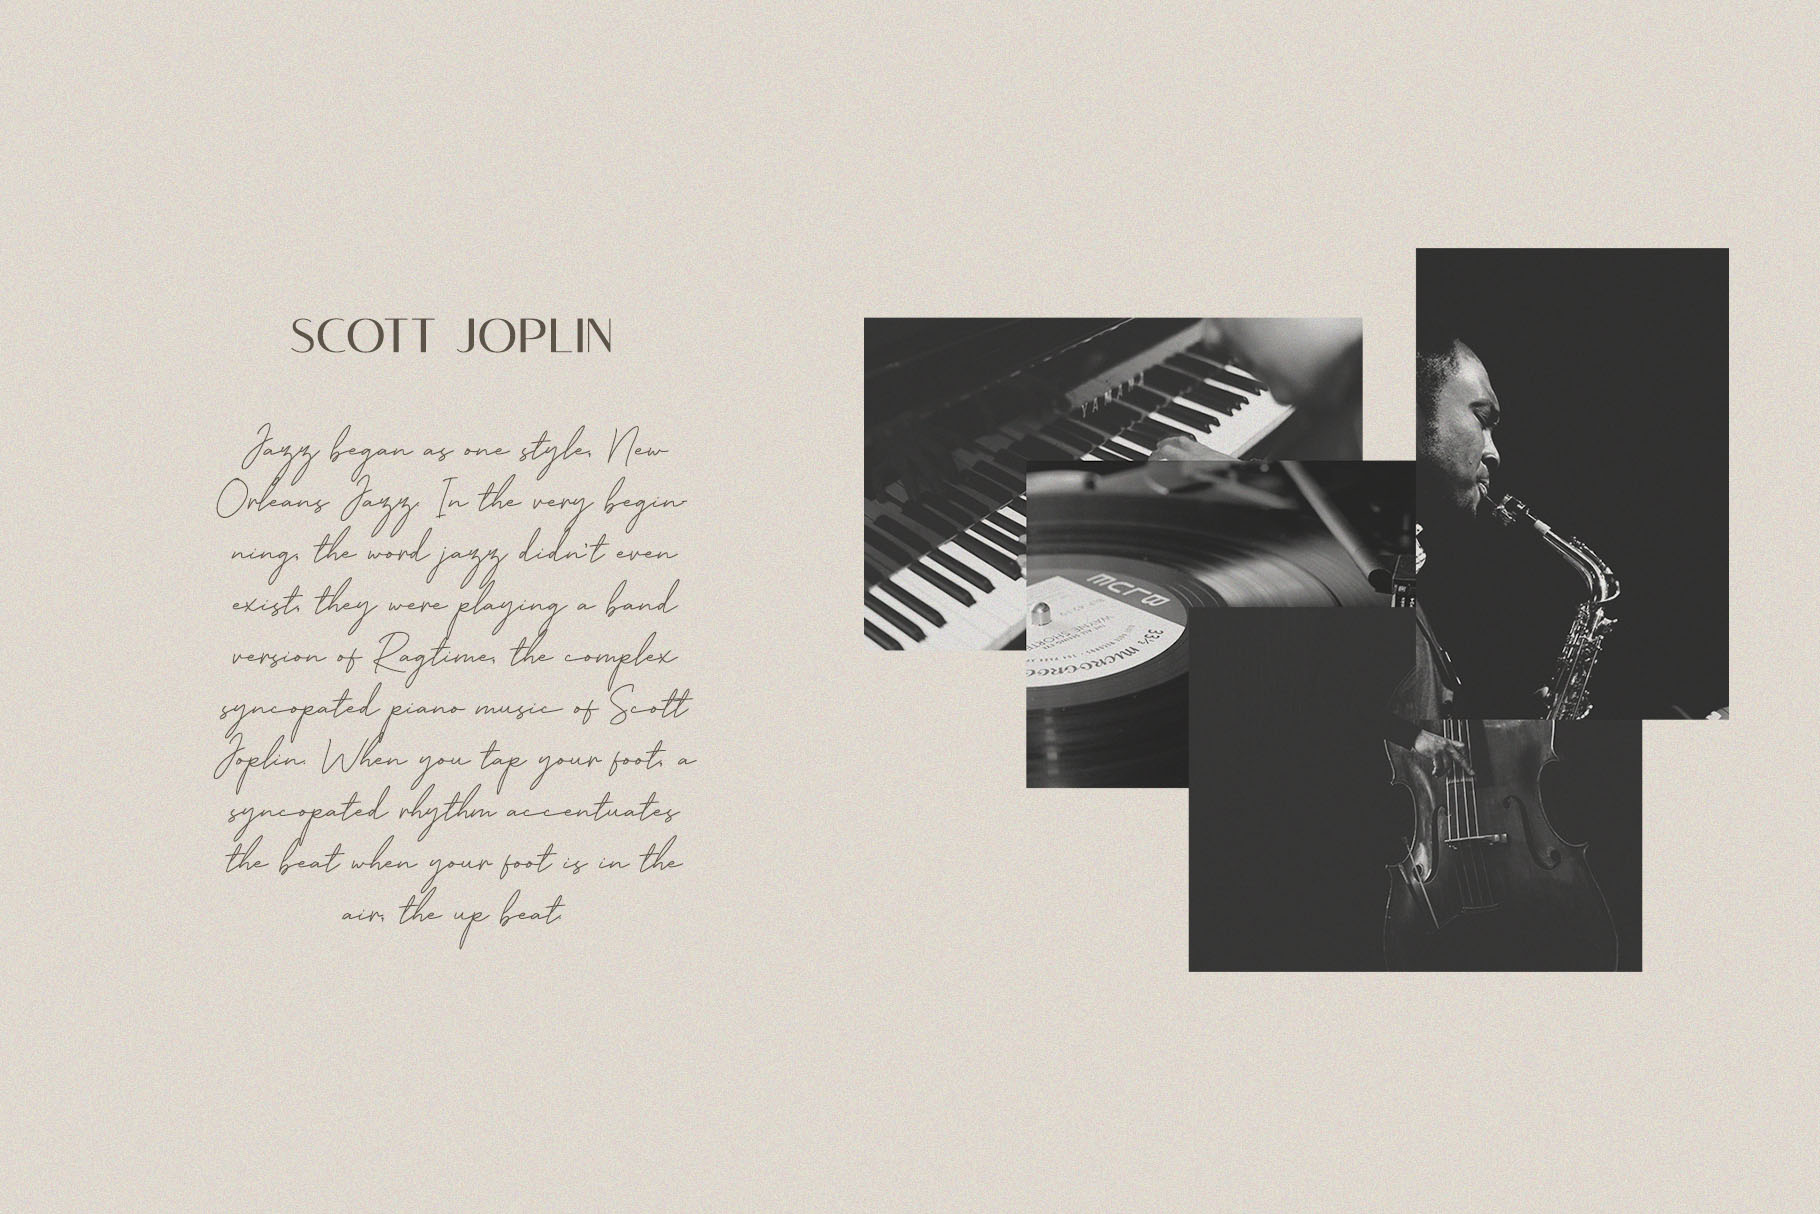 SCOTT JOPLIN
Jazz began as one style, New
Orleans Jazz. In the very begin-
ning, the word jazz didn't even
exist, they were playing a band
version of Ragtime, the complex
syncopated piano music of Scott
Joplin. When you tap your foot, a
syncopated rhythm accentuates
the beat when your foot is in the
air, the up beat.
YAMAH
WAYNE SHORTE
33⅓ MICROGROO